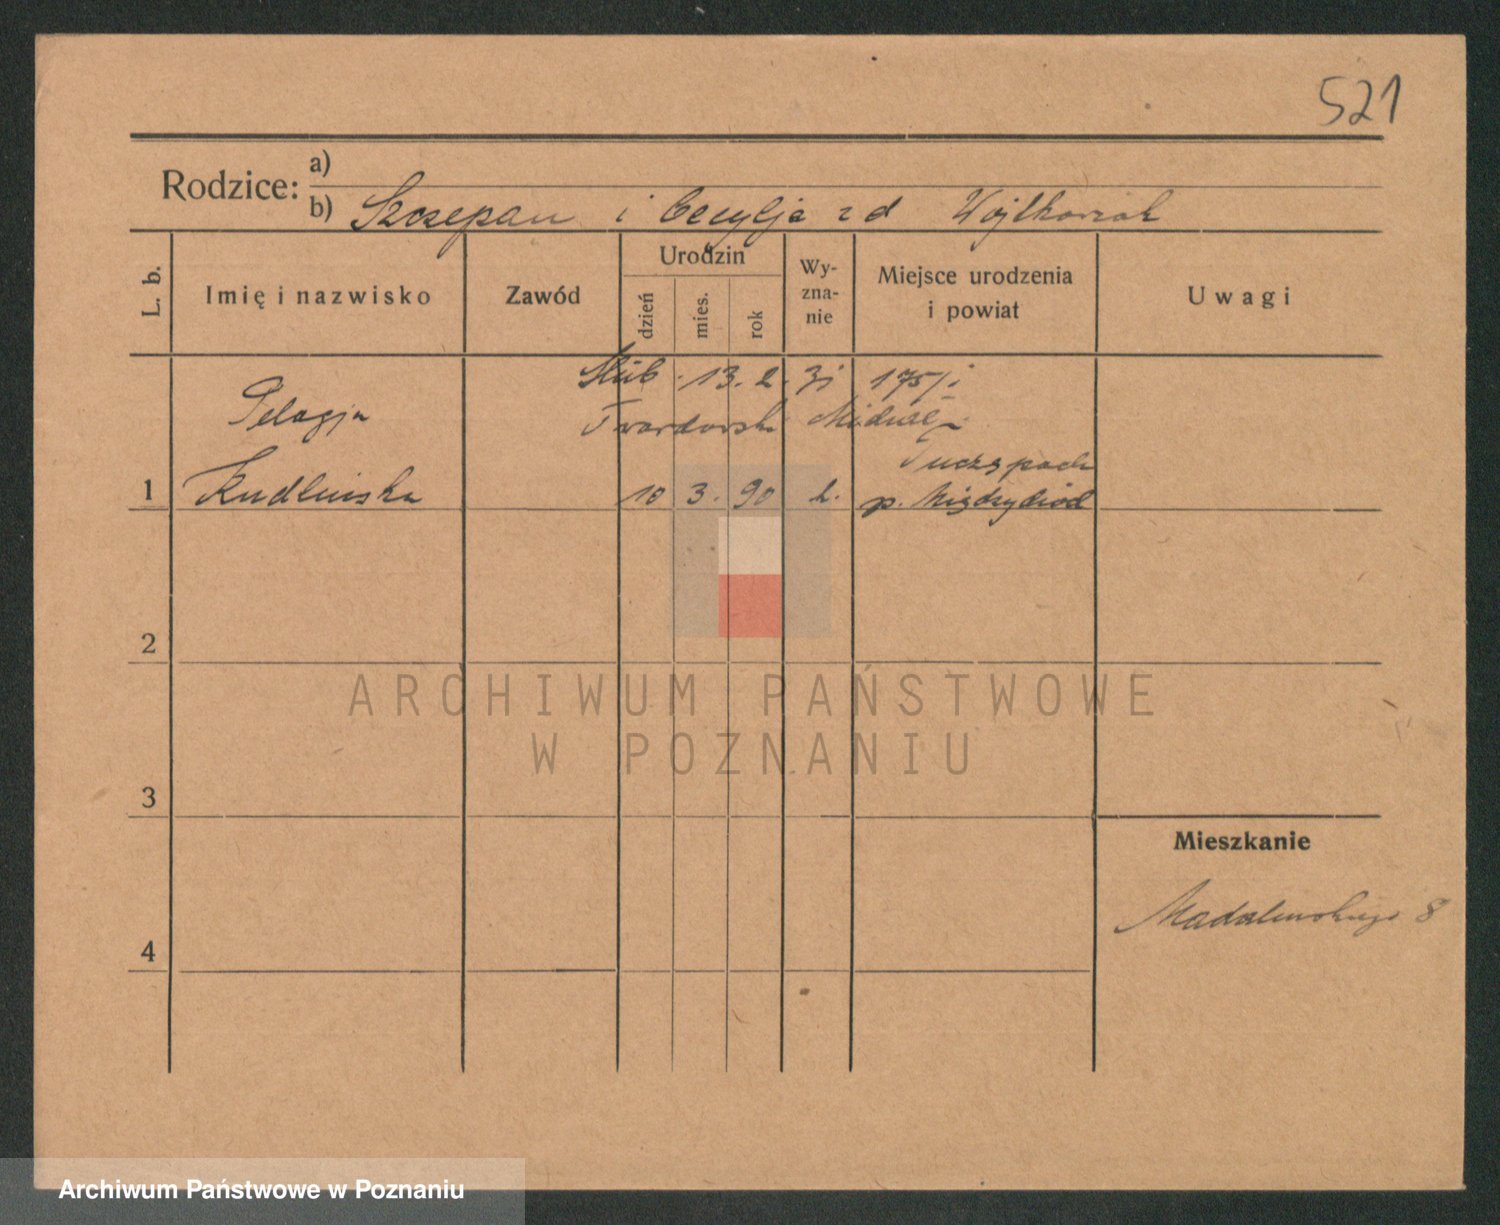 521
Rodzice: a)
b) Szczepan i Cecylja z d Wojtkowiak
L. b.
Imię i nazwisko
Zawód
Urodzin
dzień
mies.
rok
Wy-
zna-
nie
Miejsce urodzenia
i powiat
Uwagi
Ślub 13. 2. 31 175/i
Pelagja
Twardowski Michał
Tuczępach
1 Kudlińska 10 3. 90 k. p. Międzychód
2
ARCHIWUM PAŃSTWOWE
W POZNANIU
3
Mieszkanie
Madalińskiego 8
4
Archiwum Państwowe w Poznaniu